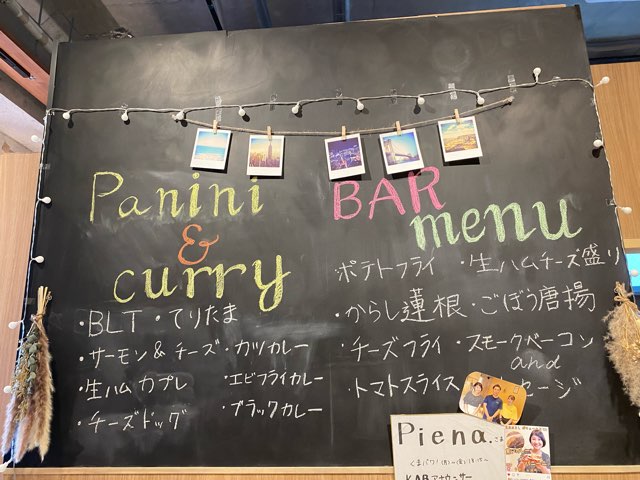 Panini
&
curry
・BLT ・てりたま
・サーモン&チーズ ・カツカレー
・生ハムカプレ ・エビフライカレー
・チーズドッグ ・ブラックカレー
BAR
menu
・ポテトフライ ・生ハムチーズ盛り
・からし蓮根 ・ごぼう唐揚
・チーズフライ ・スモークベーコン
and
・トマトスライス セージ
Piena.さま
KABアナウンサー